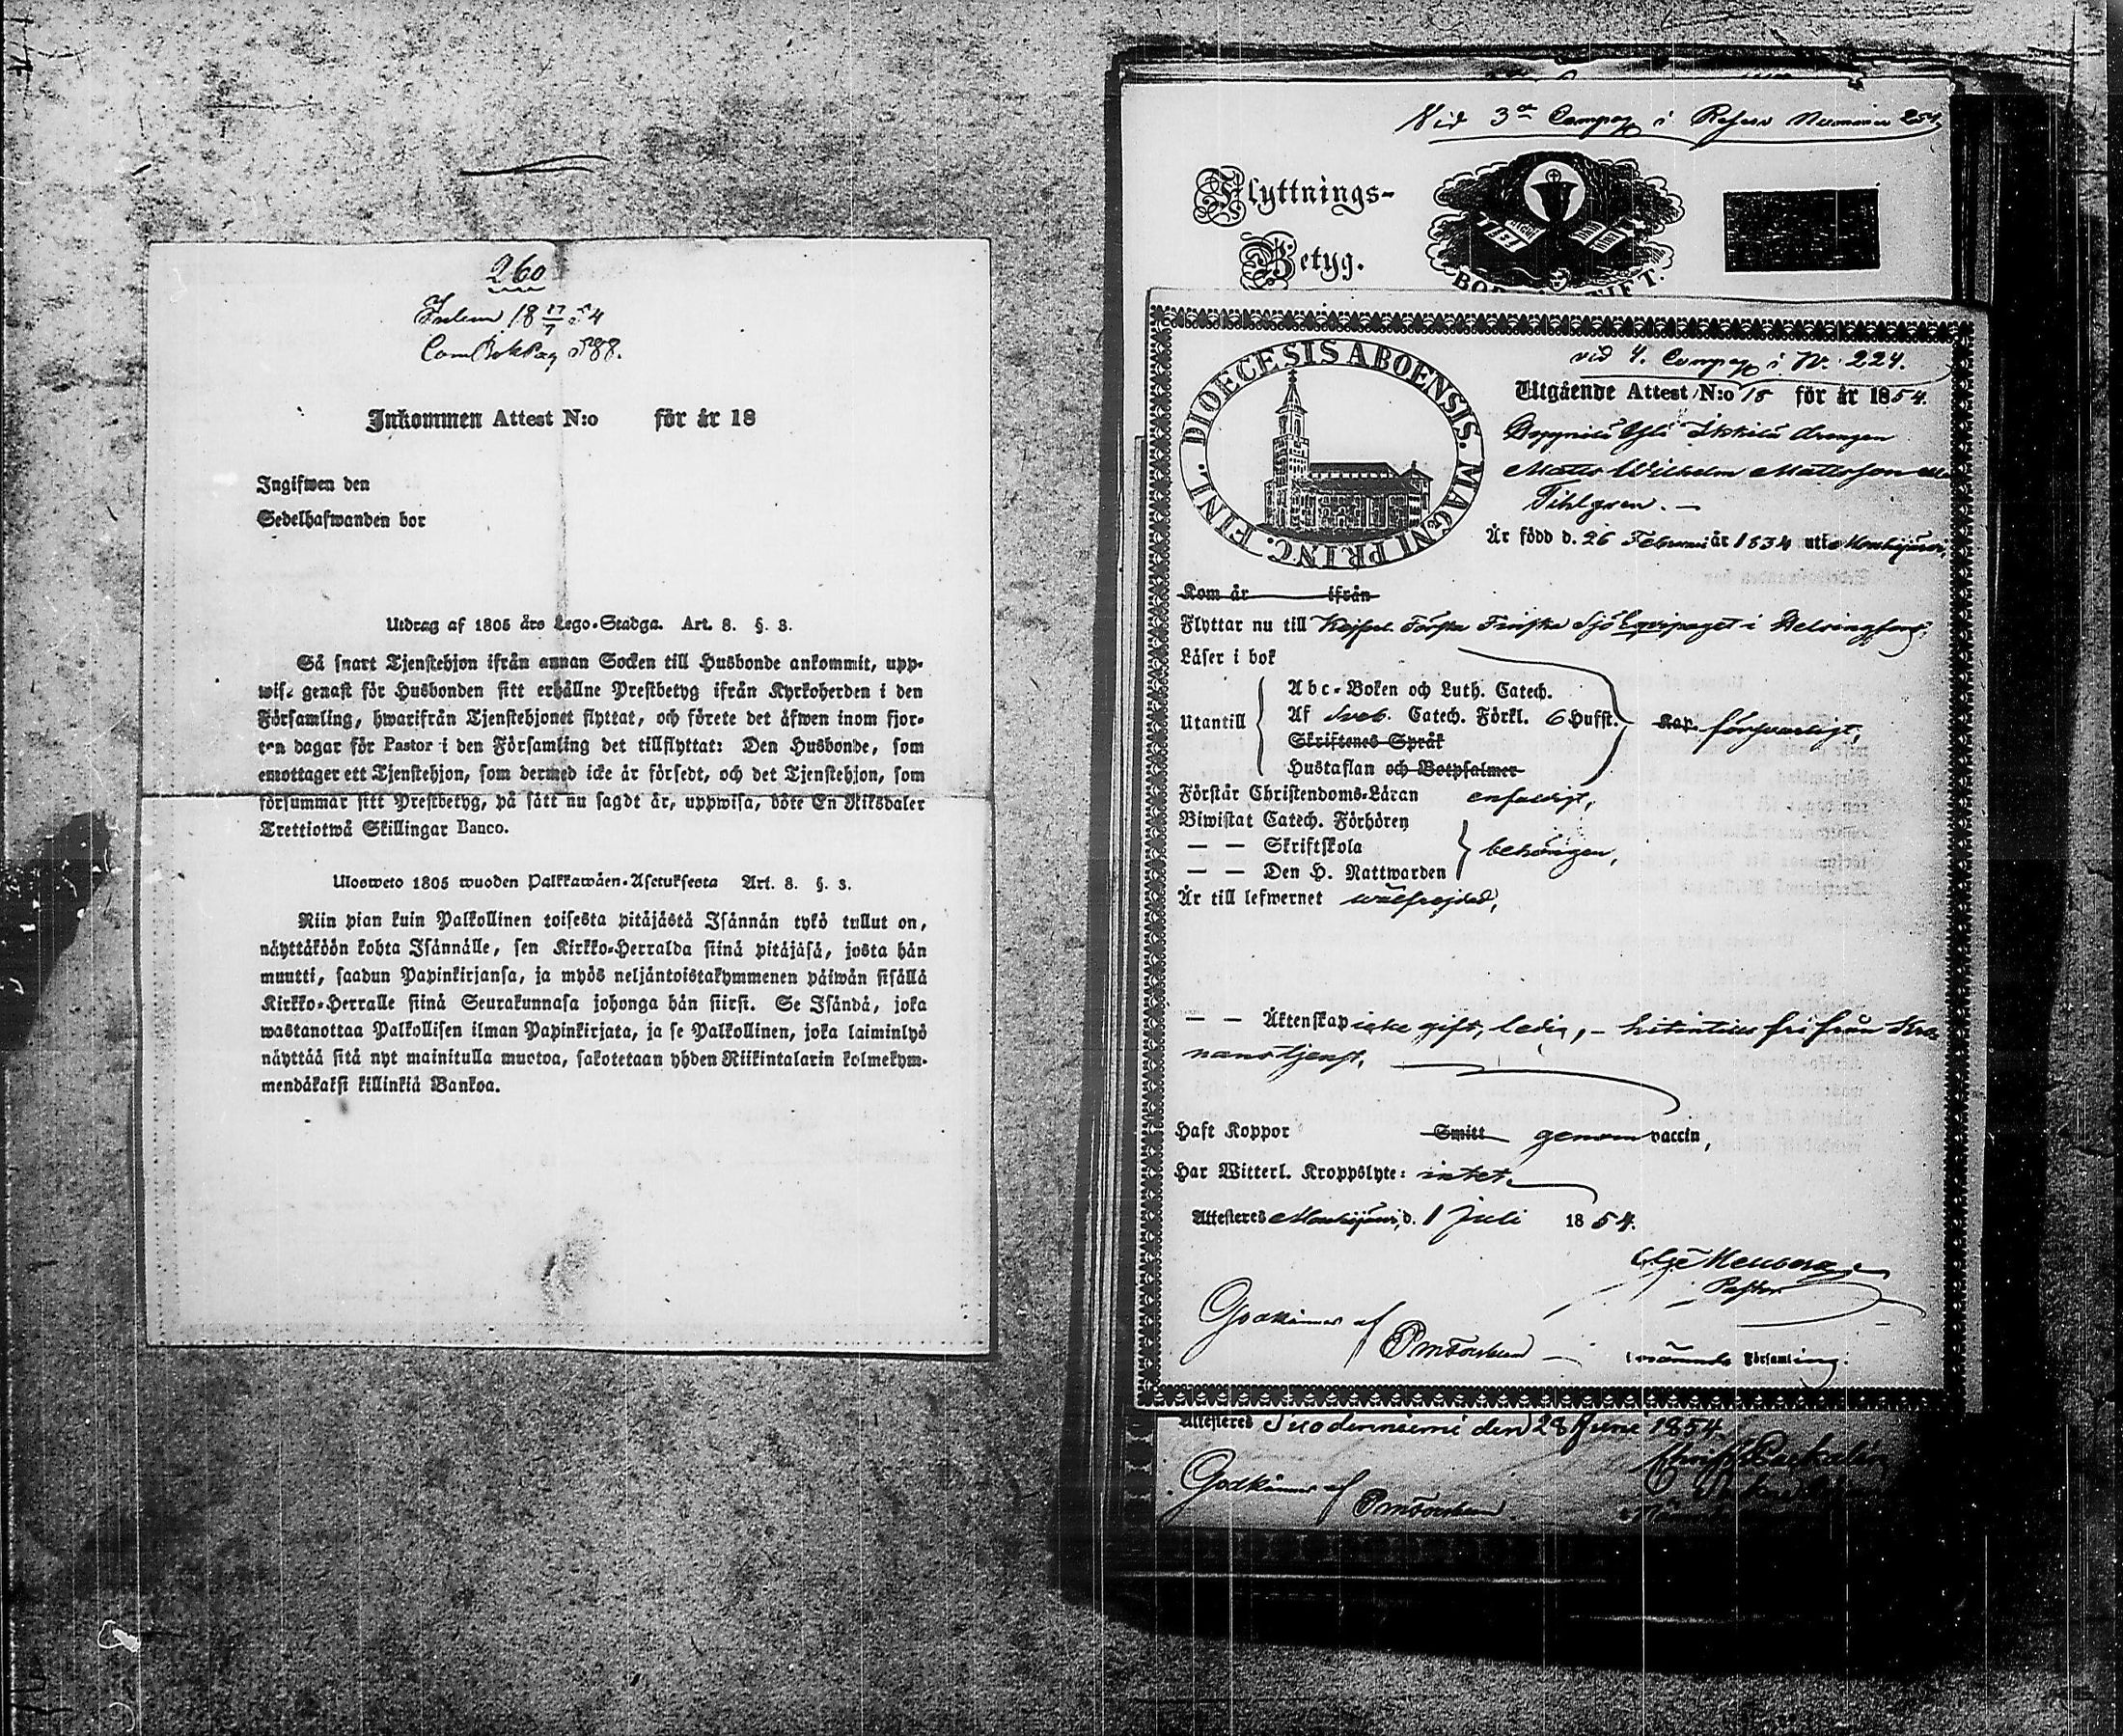 260
Inlem 18 17/7 54
Com Bok Pag 588.
Inkommen Attest N:o för år 18
Ingifwen den
Sedelhafwanden bor
Utdrag af 1805 års Lego-Stadga. Art. 8. §. 3.
Så snart Tjenstehjon ifrån annan Socken till Husbonde ankommit, upp-
wise genast för Husbonden sitt erhållne Prestbetyg ifrån Kyrkoherden i den
Församling, hwarifrån Tjenstehjonet flyttat, och förete det äfwen inom fjor-
ton dagar för Pastor i den Församling det tillflyttat: Den Husbonde, som
emottager ett Tjenstehjon, som dermed icke är försedt, och det Tjenstehjon, som
försummar sitt Prestbetyg, på sätt nu sagdt är, uppwisa, böte En Riksdaler
Trettiotwå Skillingar Banco.
Ulosweto 1805 wuoden Palkkawäen-Asetuksesta Art. 8. §. 3.
Niin pian kuin Palkollinen toisesta pitäjästä Isännän tykö tullut on,
näyttäköön kohta Isännälle, sen Kirkko-Herralda siinä pitäjäsä, josta hän
muutti, saadun Papinkirjansa, ja myös neljäntoistakymmenen päiwän sisällä
Kirkko-Herralle siinä Seurakunnasa johonga hän siirsi. Se Isändä, joka
wastanottaa Palkollisen ilman Papinkirjata, ja se Palkollinen, joka laiminlyö
näyttää sitä nyt mainitulla muotoa, sakotetaan yhden Riikintalarin kolmekym-
mendäkaksi killinkiä Bankoa.
Vid 3de Compag i Reserv Nummer 254
Flyttnings-
Betyg.
vid 4. Compag i N. 224.
DIOECESIS ABOENSIS. MAGNI PRINC. FINL.
Utgående Attest N:o 18 för år 1854.
Yli Ikkilä drengen
Matts Wilhelm Mattsson
Tihlgren. —
Är född d. 26 Februari år 1834 uti Mouhijärvi,
Kom år ifrån
Flyttar nu till Kejserl. Första Finska Sjö Equipaget i Helsingfors,
Läser i bok
Abc-Boken och Luth. Catech.
Utantill Af Sveb. Catech. Förkl. 6 Hufst. Kap försvarligt,
Skriftenes Språk
Hustaflan och Botpsalmer
Förstår Christendoms-Läran enfaldigt,
Biwistat Catech. Förhören
— — Skriftskola behörigen,
— — Den H. Nattwarden
Är till lefwernet wälfrejdad,
— — Äktenskap icke gift, ledig, – hitintills fri från Kro
nans tjenst,
Haft Koppor Smitt genom vaccin,
Har Witterl. Kroppslyte: intet.
Attesteras Mouhijärvi, d. 1 Juli 1854.
Pastor
Godkännes af
i nämnde Församling.
Attesteres Suodenniemi den 28 Junii 1854.
Godkännes af